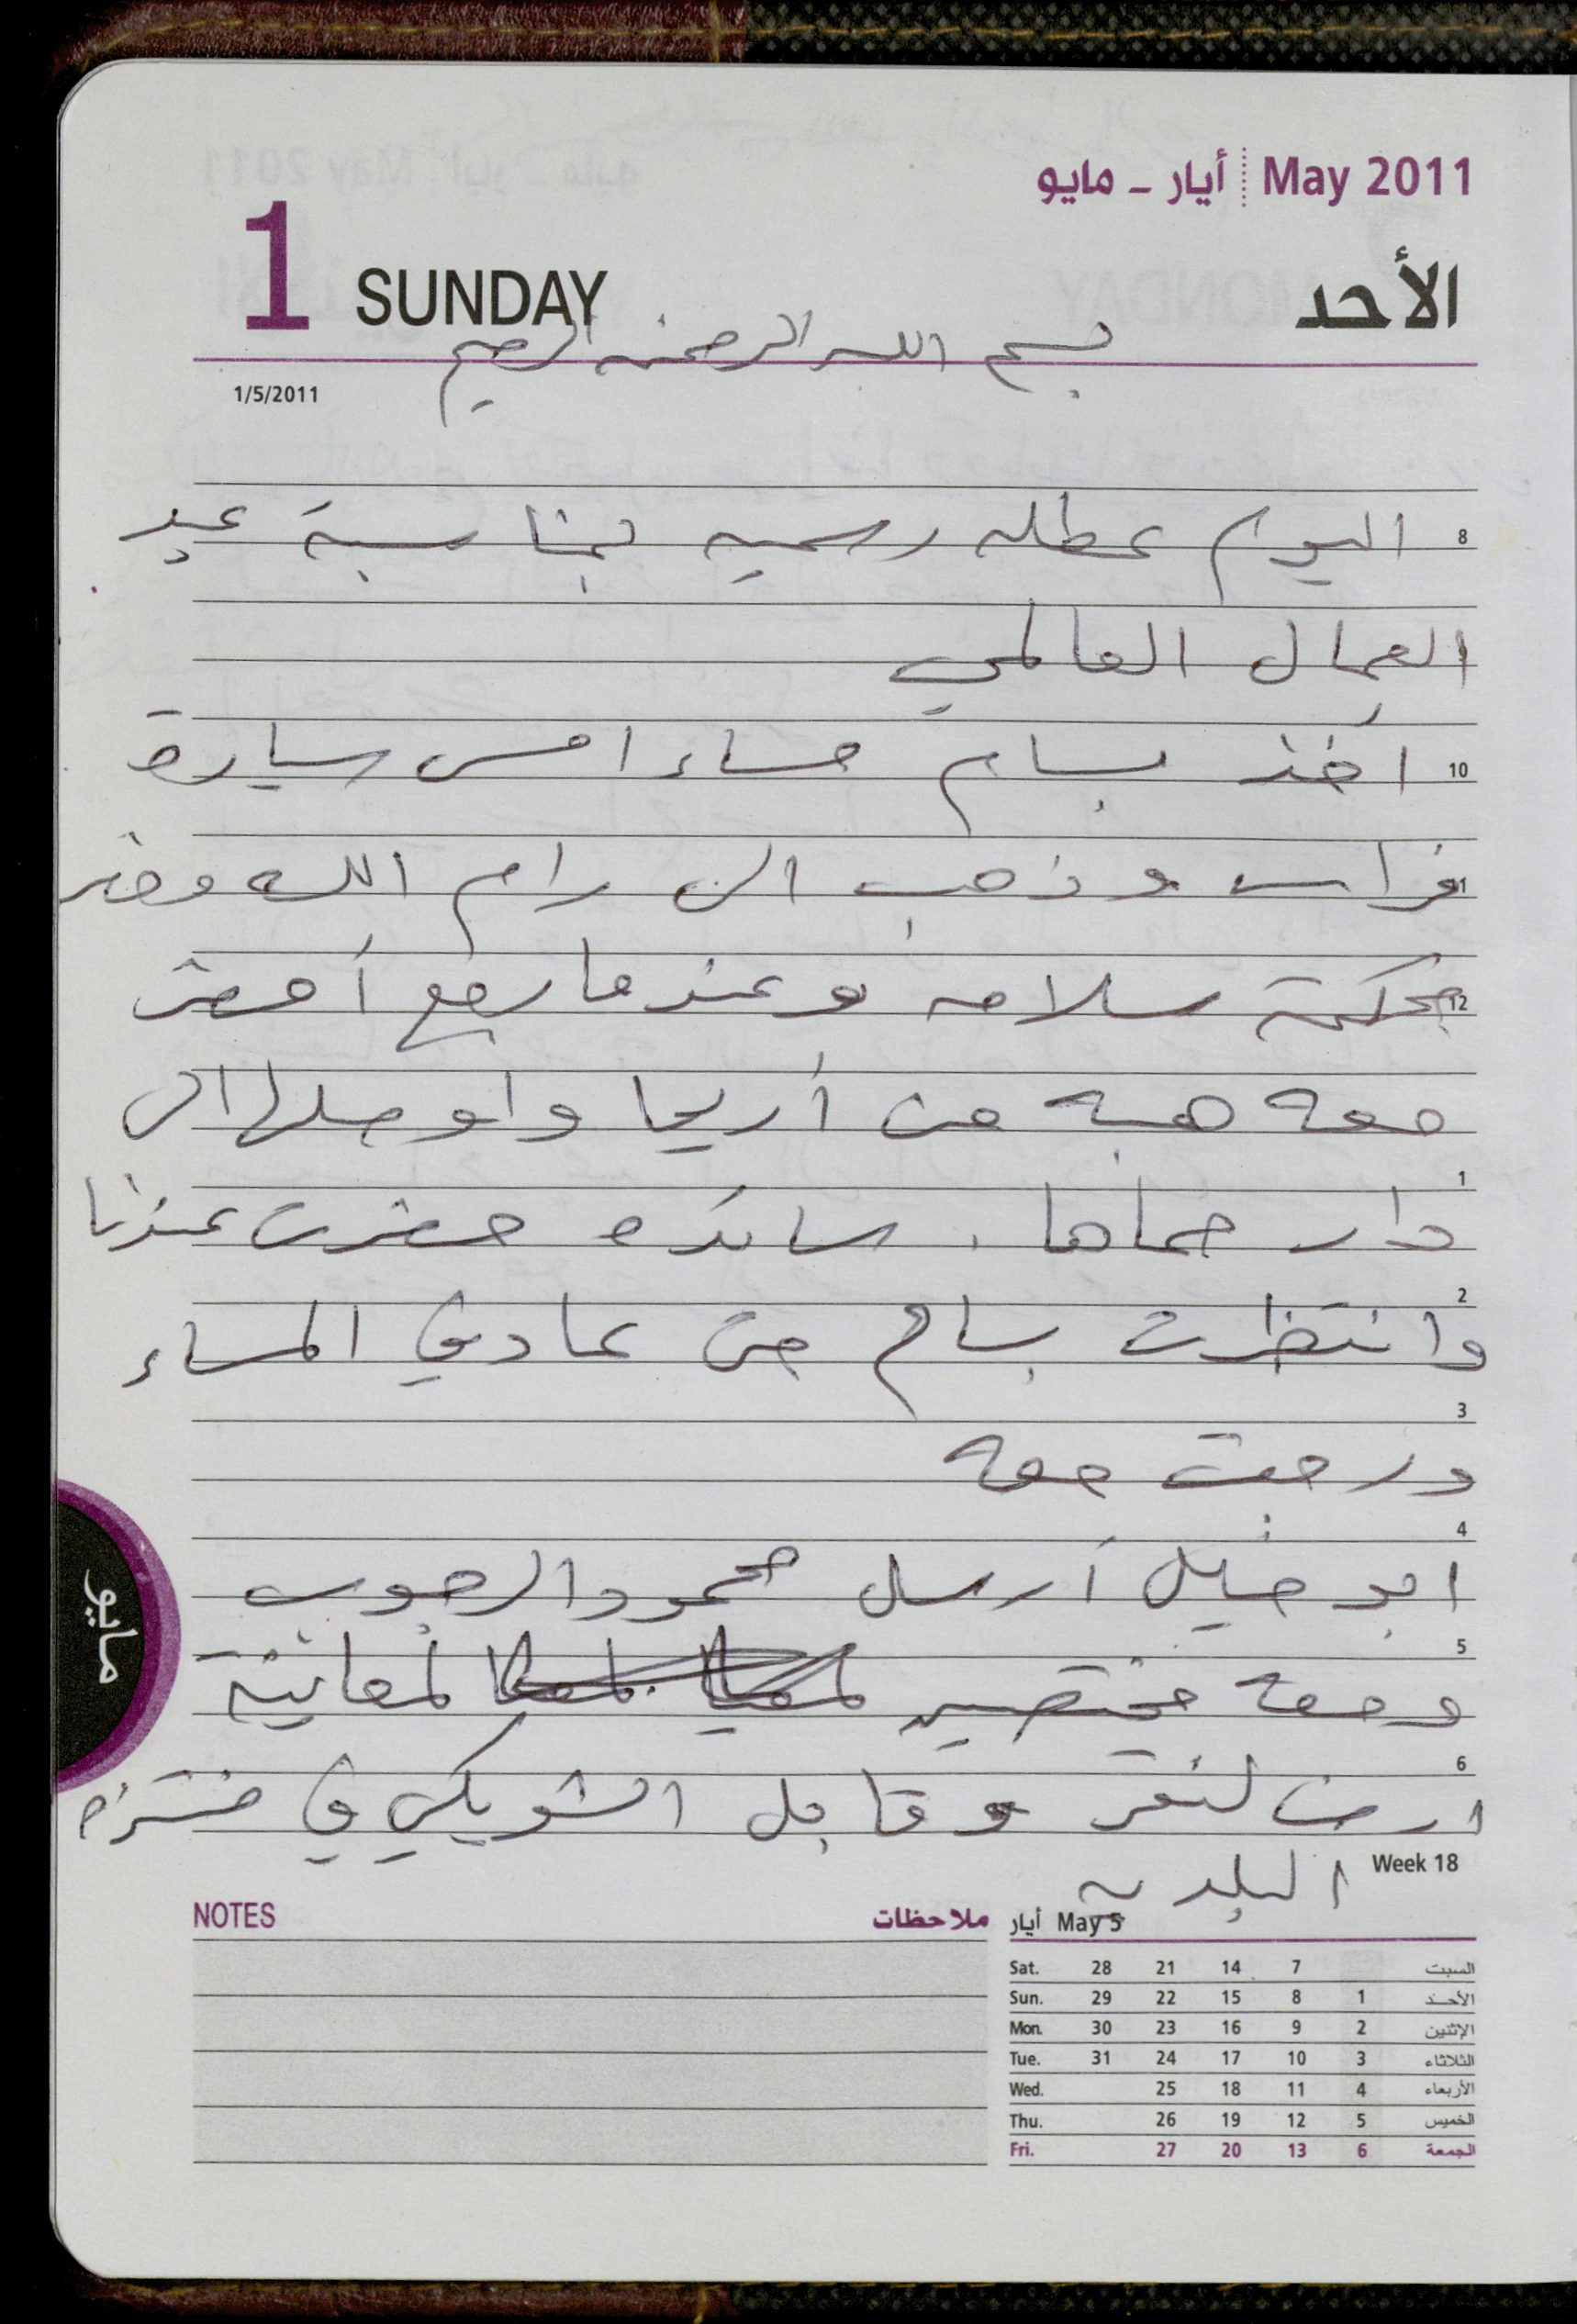 May 2011 أيار - مايو
1 SUNDAY الأحد
بسم الله الرحمن الرحيم
1/5/2011
8 اليوم عطله رسميه بمناسبة عيد
العمال العالمي
10 أخذ بسام مساء امس سيارة
11 فراس وذهب الى رام الله وحضر
12 محكمة سلامه وعندما رجع أحضر
معه هبه من أريحا واوصلها الى
1
دار حماها . سائده حضرت عندنا
2
وانتظرت بسام من عادي المساء
3
ورجعت معه
4
ابو خليل أرسل محمود الرجوب
5
ومعه مختصين لمعاينة
6
ارض لنقر وقابل الشويكي في منتزه
البلديه
Week 18
مايو
NOTES ملاحظات
أيار May 5
Sat. 28 21 14 7 السبت
Sun. 29 22 15 8 1 الأحد
Mon. 30 23 16 9 2 الإثنين
Tue. 31 24 17 10 3 الثلاثاء
Wed. 25 18 11 4 الأربعاء
Thu. 26 19 12 5 الخميس
Fri. 27 20 13 6 الجمعة